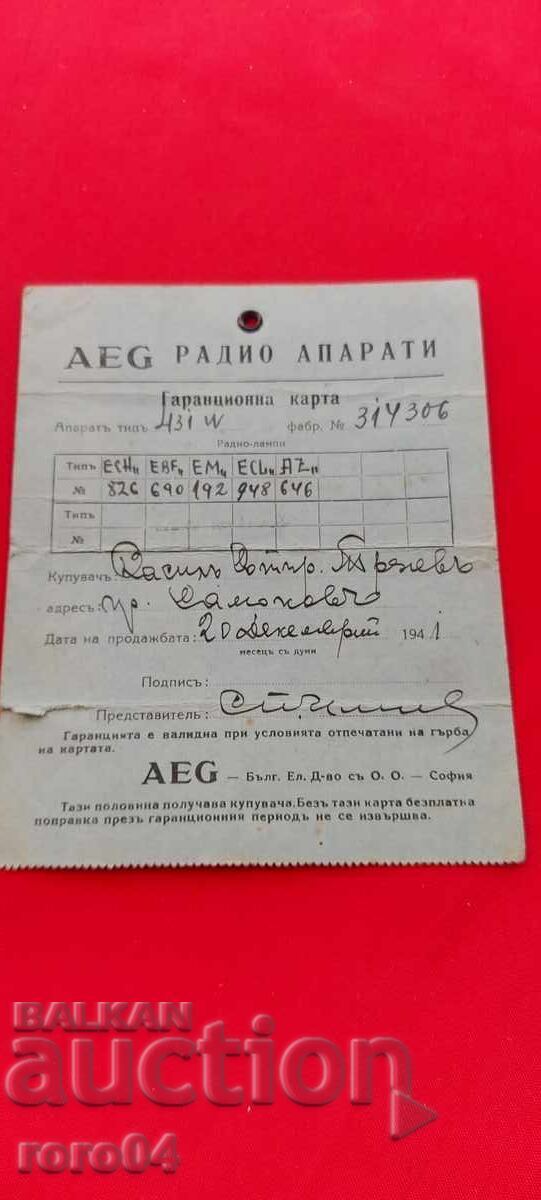 AEG РАДИО АПАРАТИ
Гаранционна карта
Апаратъ типъ 431 W фабр. № 314306
Радио-лампи
Типъ ECH11 EBF11 EM11 ECL11 AZ11
№ 826 690 192 948 646
Типъ
№
Купувачъ: Василъ
адресъ: гр. Самоковъ
Дата на продажбата: 20 Декемврий 1941
месецъ съ думи
Подписъ:
Представитель:
Гаранцията е валидна при условията отпечатани на гърба
на картата.
AEG — Бълг. Ел. Д-во съ О. О. — София
Тази половина получава купувача. Безъ тази карта безплатна
поправка презъ гаранционния периодъ не се извършва.
BALKAN
auction
roro04